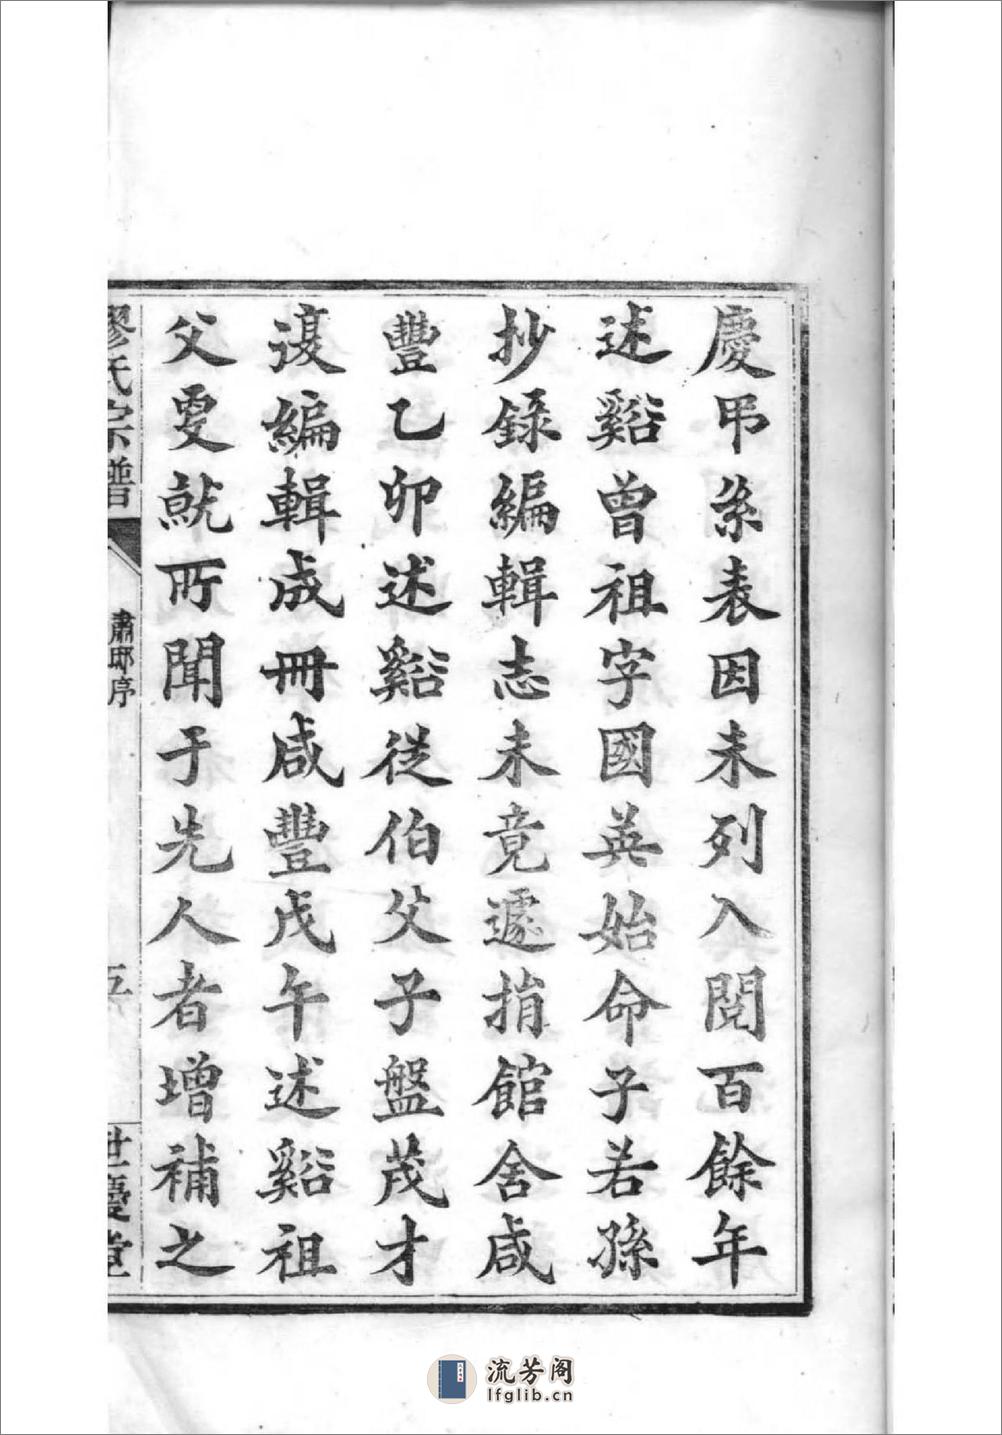 慶弔系表因未列入閱百餘年
述谿曾祖字國英始命子若孫
抄錄編輯志未竟遽捐館舍咸
豐乙卯述谿從伯父子盤茂才
復編輯成冊咸豐戊午述谿祖
父叓就所聞于先人者增補之
繆氏宗譜
肅邸序
五
世慶堂
流芳阁
lfglib.cn